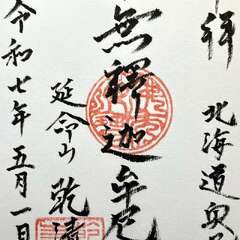 拝
北海道奥
無釋迦牟尼
延命山
令和七年五月一日